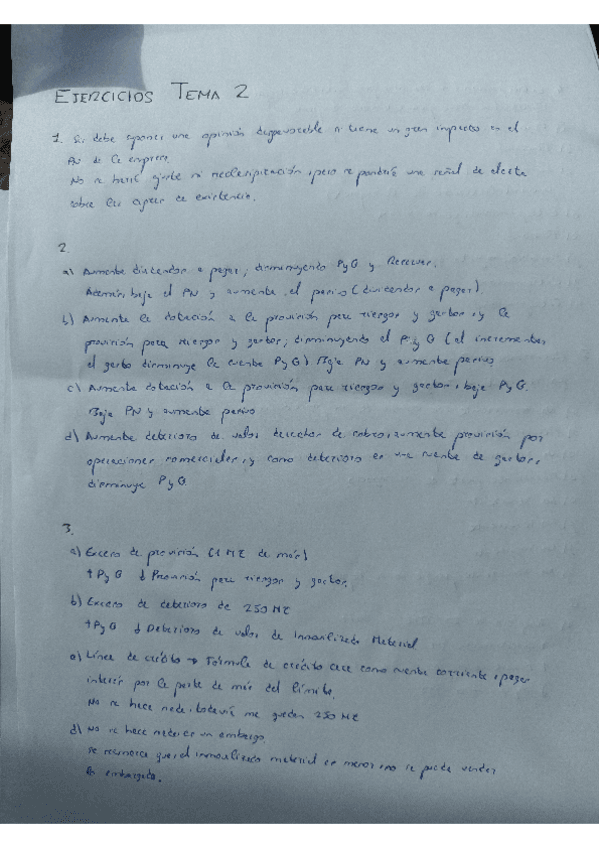 EJERCICIOS TEMA 2
1. Si, debe exponer una opinión desfavorable si tiene un gran impacto en el
PN de la empresa.
No se haría ajuste ni reclasificación, pero se pondría una señal de alerta
sobre las de existencias.
2.
a) Aumenta dividendos a pagar, disminuyendo PyG y Reservas.
Además baja el PN y aumenta el pasivo (dividendos a pagar).
b) Aumenta la dotación a la provisión para riesgos y gastos, y la
provisión para riesgos y gastos, disminuyendo el PyG (al incrementar
el gasto disminuye la cuenta PyG) Baja PN y aumenta pasivo
c) Aumenta dotación a la provisión para riesgos y gastos, baja PyG.
Baja PN y aumenta pasivo
d) Aumenta deterioro de valor derechos de cobro, aumenta provisión por
operaciones comerciales, y como deterioro es una cuenta de gastos,
disminuye PyG
3.
a) Exceso de provisión (1 M€ de más)
↑PyG ↓ Provisión para riesgos y gastos.
b) Exceso de deterioro de 250 M€
↑PyG ↓ Deterioro de valor de Inmovilizado Material
c) Línea de crédito → Fórmula de crédito como cuenta corriente, pagar
interés por la parte de más del límite.
No se hace nada, todavía me quedan 250 M€
d) No se hace nada es un embargo
que el inmovilizado material es menos no se puede vender
embargado.